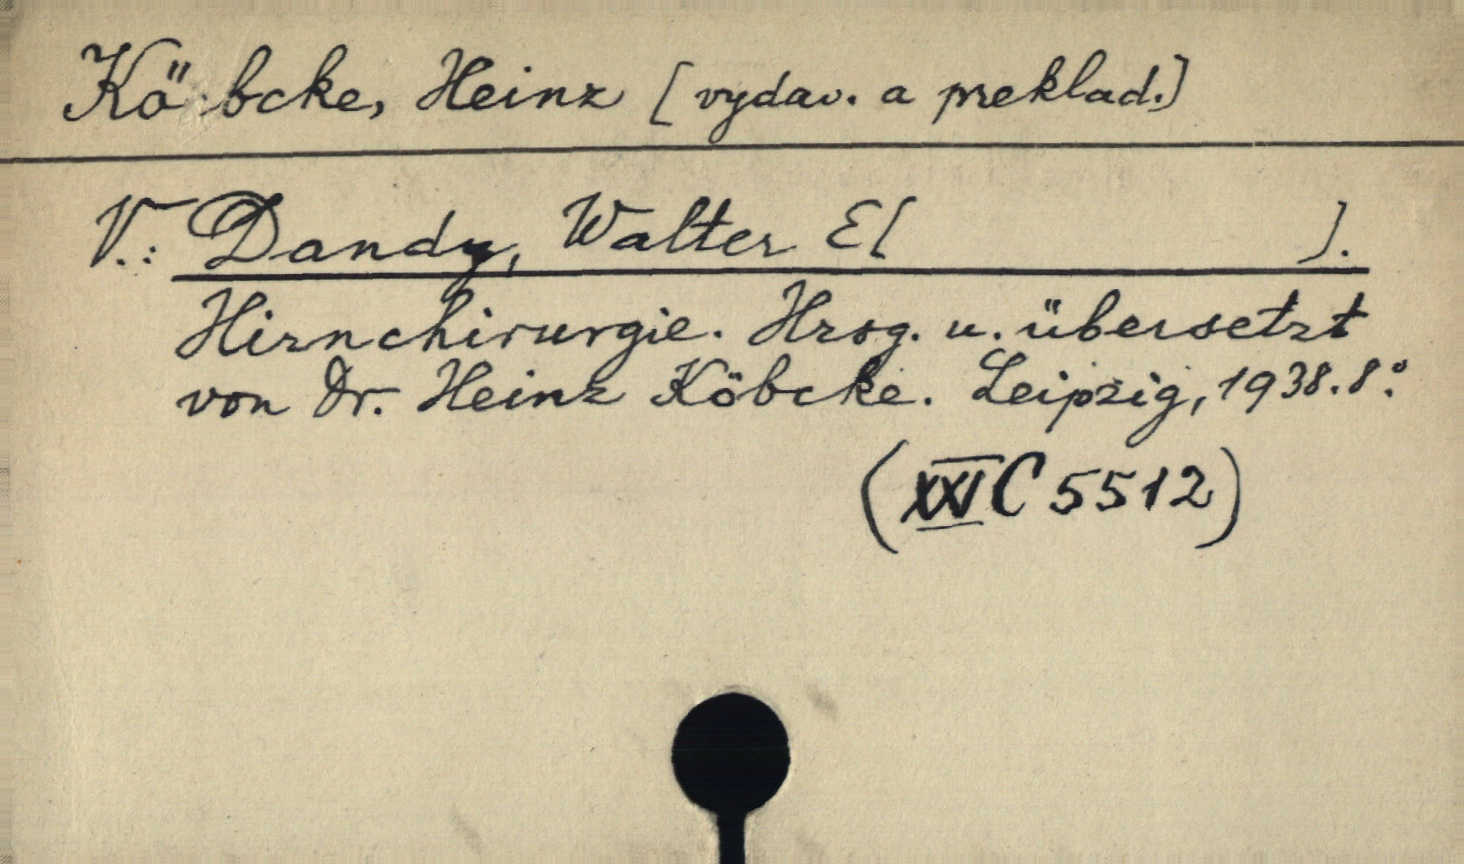 Köbcke, Heinz [vydav. a preklad.]
V.: Dandy, Walter E[ ].
Hirnchirurgie. Hrsg. u. übersetzt
von Dr. Heinz Köbcke. Leipzig, 1938. 8°.
(XXVI C 5512)